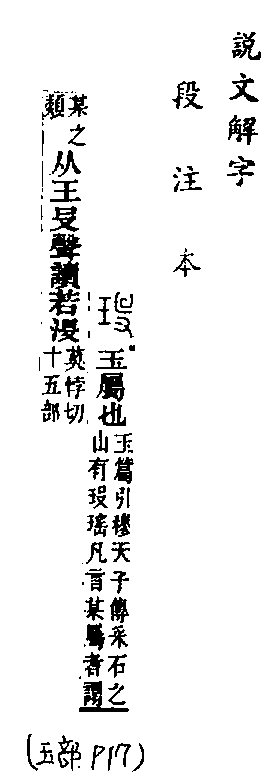 説文解字
段注本
玉屬也
玉篇引穆天子傳采石之
山有𤣻瑤凡言某屬者謂
某之
類
从王𠬛聲讀若沒
莫悖切
十五部
(玉部 P17)